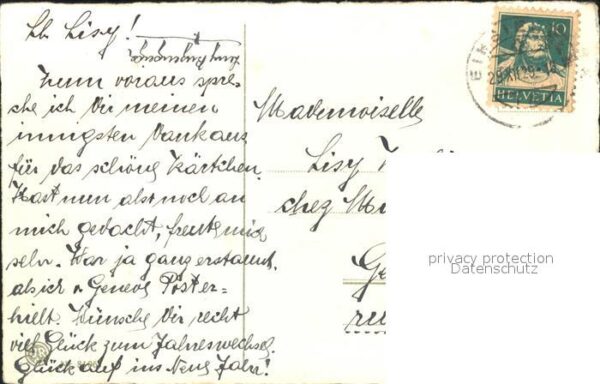 Lb. Lisy!
Zum voraus spre-
che ich Dir meinen
innigsten Dank aus
für das schöne Kärtchen.
Hast nun also noch an
mich gedacht, freute mich
sehr. War ja ganz erstaunt,
als ich v. Genève Post er=
hielt. Wünsche Dir recht
viel Glück zum Jahreswechsel.
Glück auf ins Neue Jahr!
Mademoiselle
Lisy
chez
Ge
ru
10
HELVETIA
privacy protection
Datenschutz